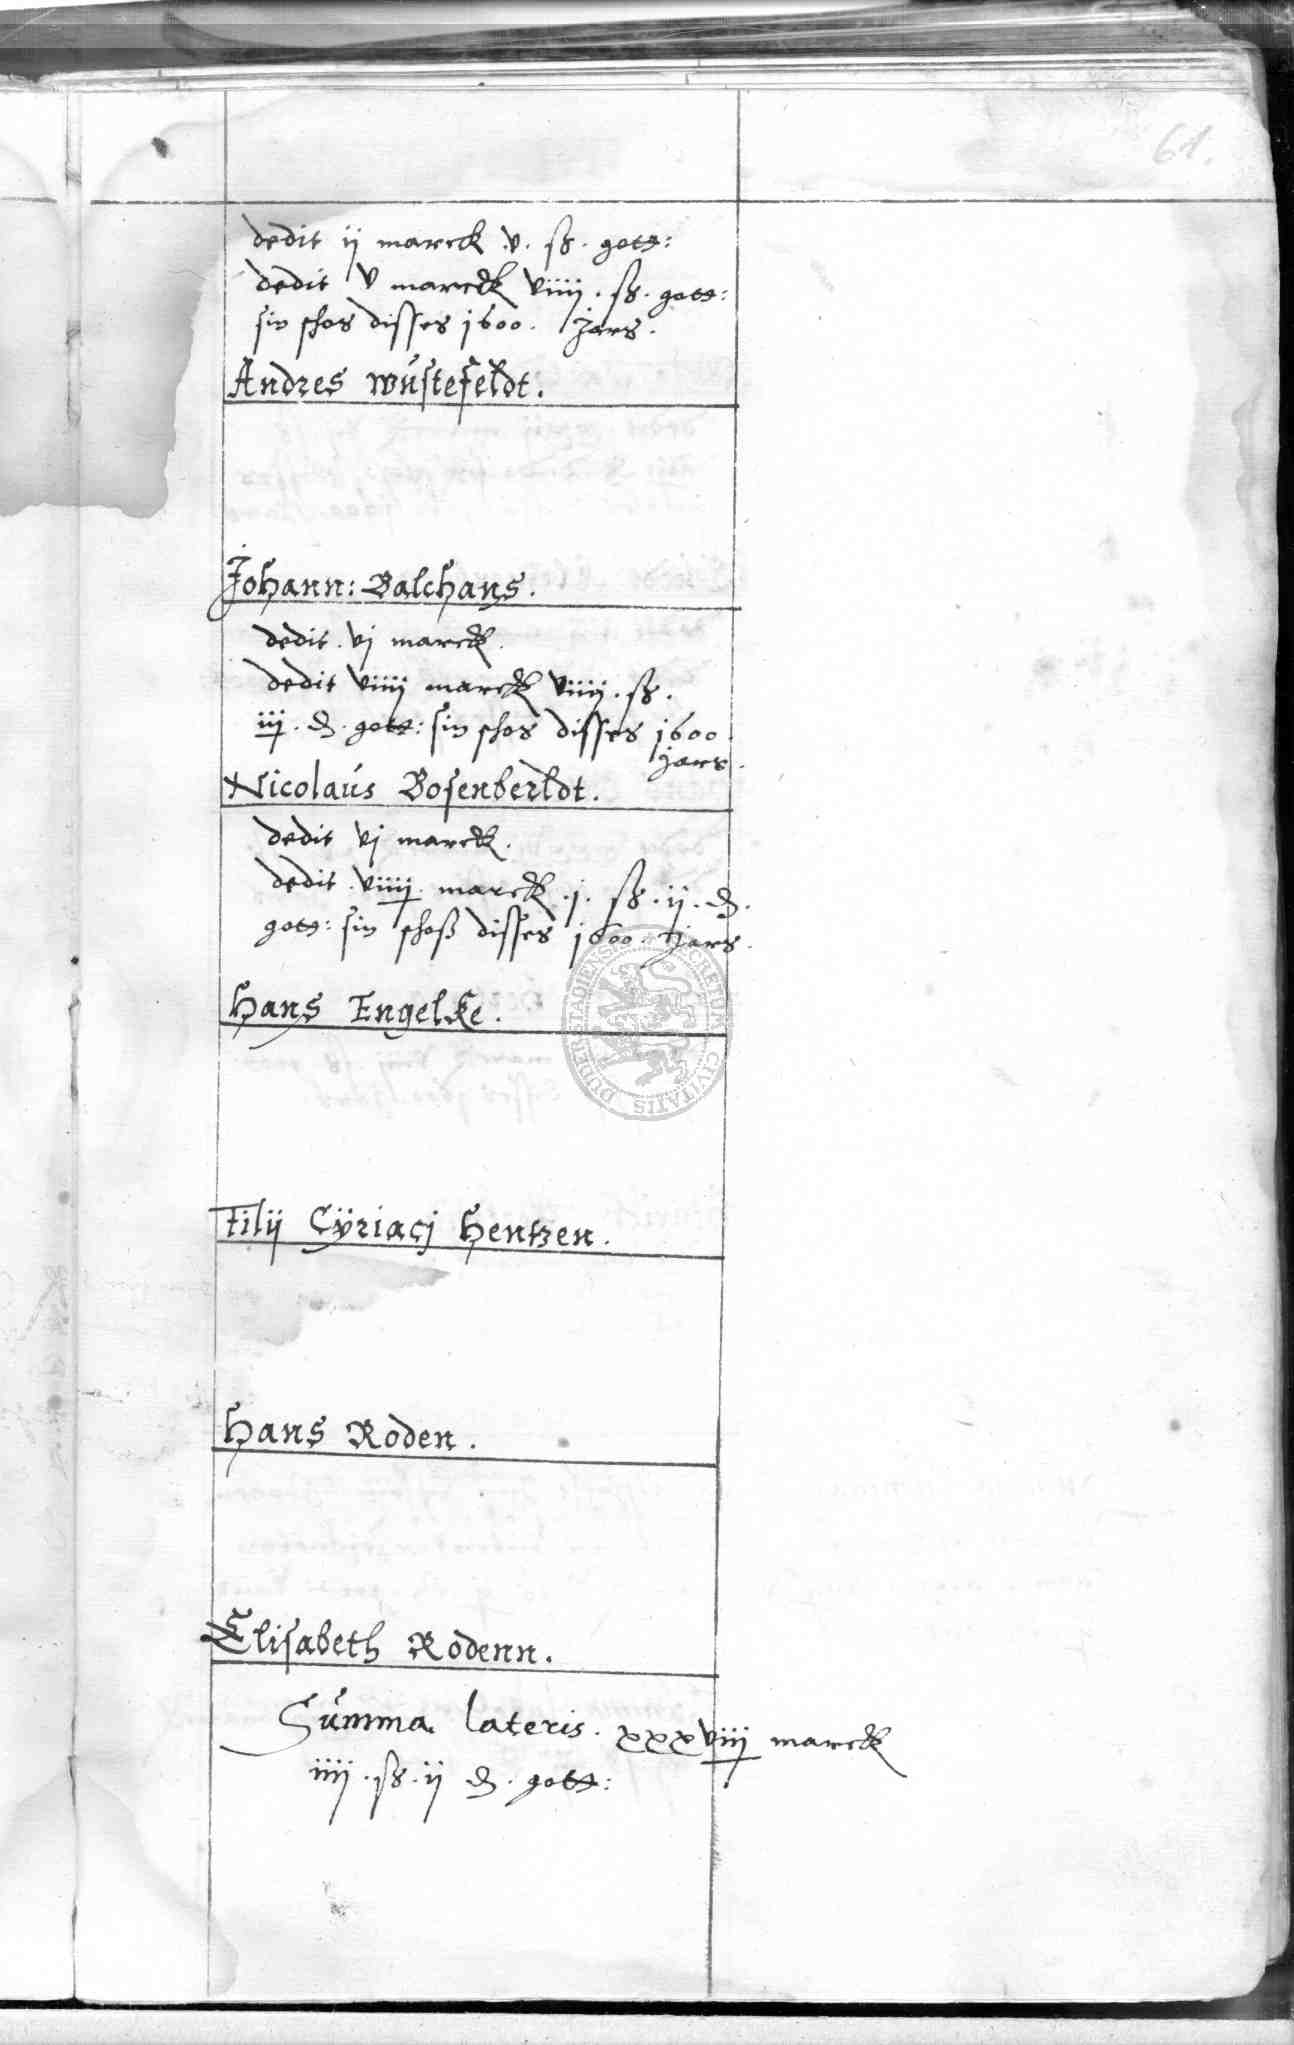 61.
dedit ij marck .v. ß. gott:
dedit v marck viiij. ß. gott:
sin schos disses 1600. Jars.
Andres wustefeldt.
Johann: Balchans.
dedit. vj marck.
dedit viiij marck viiij. ß.
iij. ₰. gott: sin schos disses 1600.
Jars.
Nicolaus Bosenberldt.
dedit vj marck.
dedit. viiij. marck .j. ß. ij. ₰.
gott: sin schoß disses 1600. Jars.
Hans Engelke.
SECRETUM CIVITATIS DUDERSTADIENSIS
Filij Cÿriacj Hentzen.
Hans Roden.
Elisabeth Rodenn.
Summa lateris. xxxviiij marck
iiij. ß. ij ₰. gott: